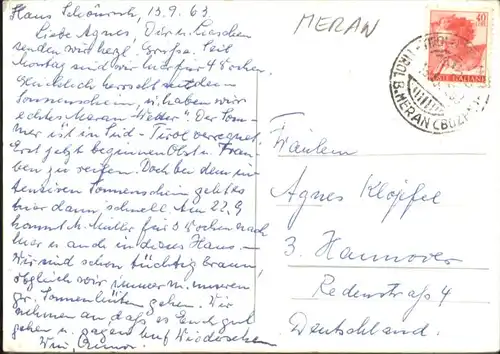 Haus Schönruh, 13.9.63
Liebe Agnes, Dir u. Lieschen
senden wir herzl. Grüße. Seit
Montag sind wir hier für 4 Wochen.
Glücklich herrscht seitdem
Sonnenschein, u. haben wir
echtes Meran-Wetter". Der Som-
mer ist in Süd-Tirol verregnet.
Erst jetzt beginnen Obst u. Trau-
ben zu reifen. Doch bei dem in-
tensiven Sonnenschein geht es
hier dann schnell. Am 22.9
kommt M. Müller für 3 Wochen nach
hier u. auch in dieses Haus.-
Wir sind schon tüchtig braun,
obgleich wir immer m. unseren
gr. Sonnenhüten gehen. Wir
nehmen an daß es Euch gut
gehen u. sagen auf Wiedersehen
MERAN
40
LIRE
POSTE ITALIANE
TIROL B. MERAN (BOZEN)
Fräulein
Agnes Klöpfel
3. Hannover
Redenstraße 4
Deutschland.